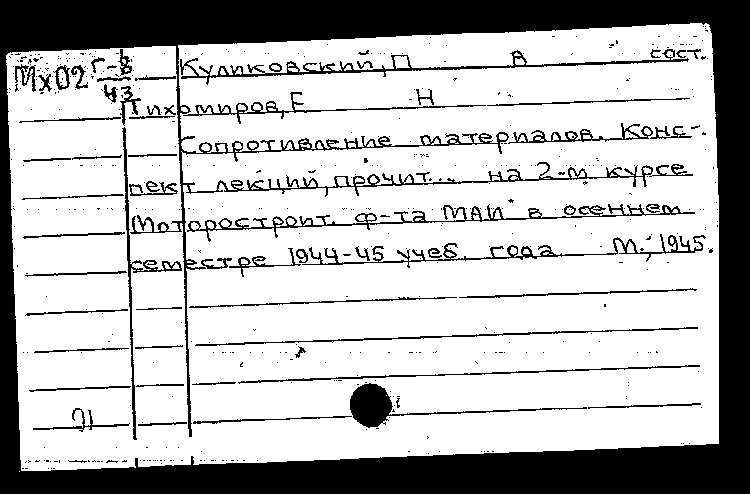 Мх02 Г-8 Куликовский, П А сост.
43 Тихомиров, Е Н
Сопротивление материалов. Конс-
пект лекций, прочит... на 2-м курсе
Моторостроит. ф-та МАИ в осеннем
семестре 1944-45 учеб. года М., 1945.